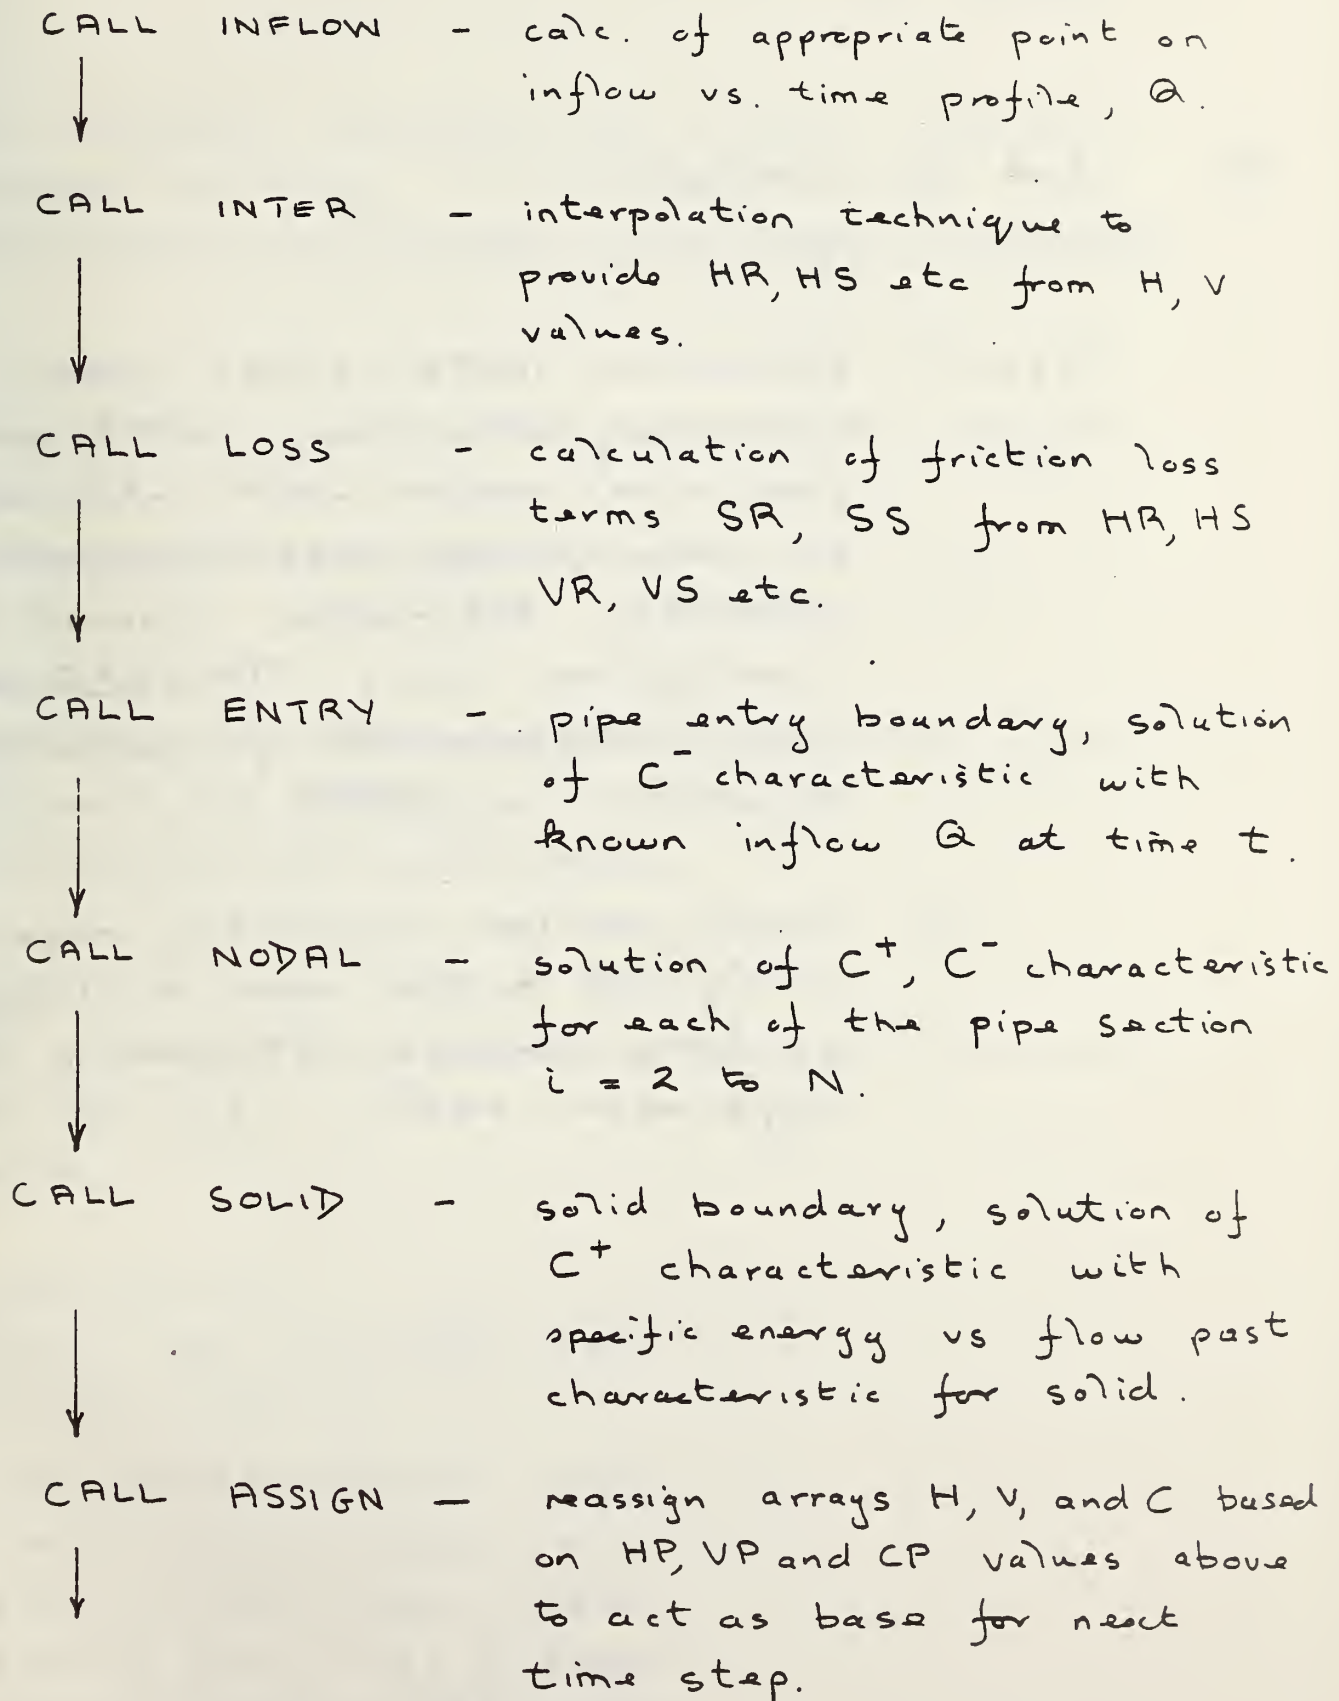 CALL INFLOW - calc. of appropriate point on
inflow vs. time profile, Q.
CALL INTER - interpolation technique to
provide HR, HS etc from H, V
values.
CALL LOSS - calculation of friction loss
terms SR, SS from HR, HS
VR, VS etc.
CALL ENTRY - pipe entry boundary, solution
of C⁻ characteristic with
known inflow Q at time t.
CALL NODAL - solution of C⁺, C⁻ characteristic
for each of the pipe section
i = 2 to N.
CALL SOLID - solid boundary, solution of
C⁺ characteristic with
specific energy vs flow past
characteristic for solid.
CALL ASSIGN - reassign arrays H, V, and C based
on HP, VP and CP values above
to act as base for next
time step.